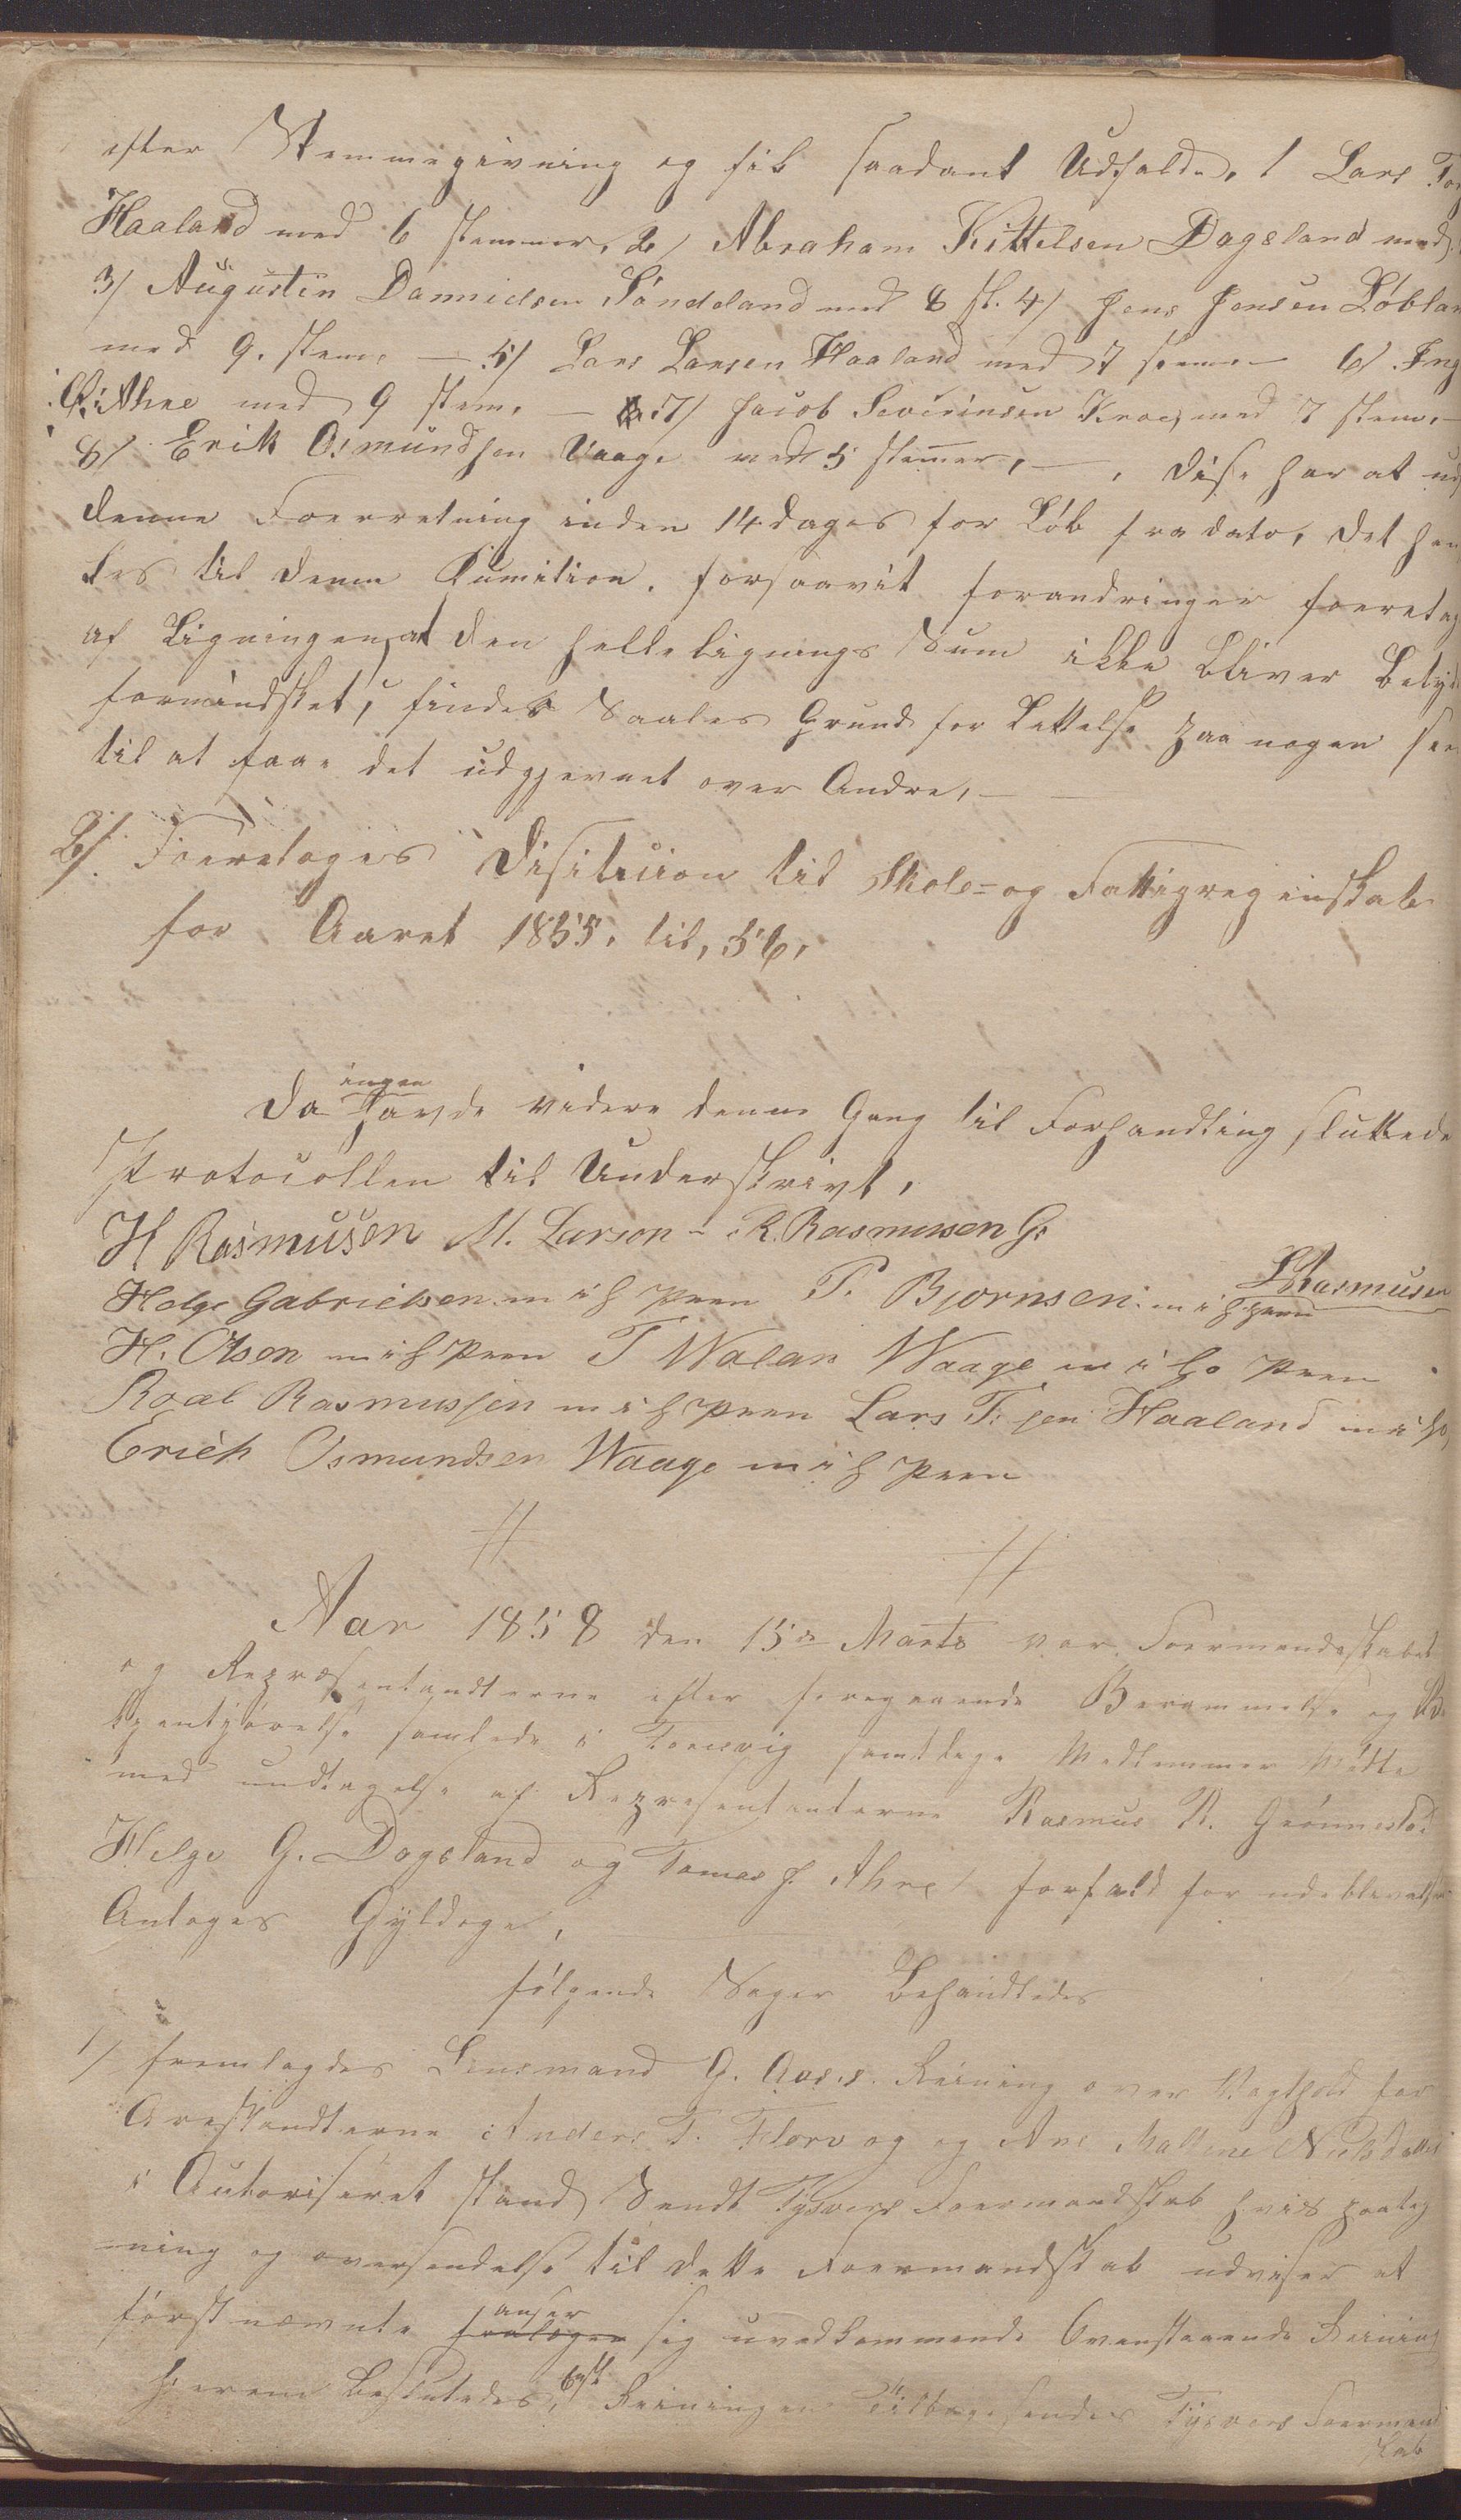 efter Stemmegivning og fik saadant Udfald. 1 Lars
Haaland med 6 stemmer, 2/ Abraham Kittelsen Dagsland med
3/ Augustin Dannielsen Søndeland med 8 st. 4/ Jens Jensen Løbla
med 9. stem. — 5/ Lars Larsen Haaland med 7 stem. — 6/ Ing
Athre med 9 stem. — 7/ Jacob Severinsen Kroeg med 7 stem. —
8/ Erik Osmundsen Vaage med 5 stemer, — , disse har at ud
denne Foerretning inden 14 dages for Løb fra dato, det hen
les til denne Kumition. forsaavit forandringer foeretag
af Ligningen, at den helle Lignings Sum ikke bliver Betyd
formindsket, findes Saales Grund for Lettelse paa nogen
til at faae det udgjevnet over Andre, —
2/. Foeretoges Disition til Skole- og Fattigregenskab
for Aaret 1855. til, 56,
Da ingen havde videre denne Gang til Forhandling sluttede
Protocollen til Underskrivt,
H Rasmusen M. Larson - R. Rasmussen G:
Helge Gabrielsen m i h Pen P. Bjørnsen m i h pen Rasmusen
H. Olsen m i h Pen T Walan Waage m i ho Pen
Roal Rasmussen m i h Pen Lars T: sen Haaland m i ho
Erich Osmundsen Waage m i h Pen
Aar 1858 den 15de Marts var Foermendskabet
og Repræsentandterne efter foregaaende Berammelse og Be
kjentjørelse samlede i Foersvig samtlege Medlemmer Møtte
med undtagelse af Representanterne Rasmus R. Grønnestad
Helge G. Dagsland og Tomas J. Ahre, forfald for udeblivelse
Antoges Gyldege,
følgende Sager Behandledes
1/ fremlagdes Lensmand G. Aases Reining over Vagthold for
Arestandterne Anders T. Florv og og Ane Maltene Nedsdallen
i Autoriseret stand Sendt Tysvers Foermandskab hvis paateg
ning og oversendelse til dette Foermandskab udviser at
førstnævnte anser sig uvedkommende Ovenstaaende Reining
herom Besluttedes, Reiningen Tilbagesendes Tysvers Foermand
skab